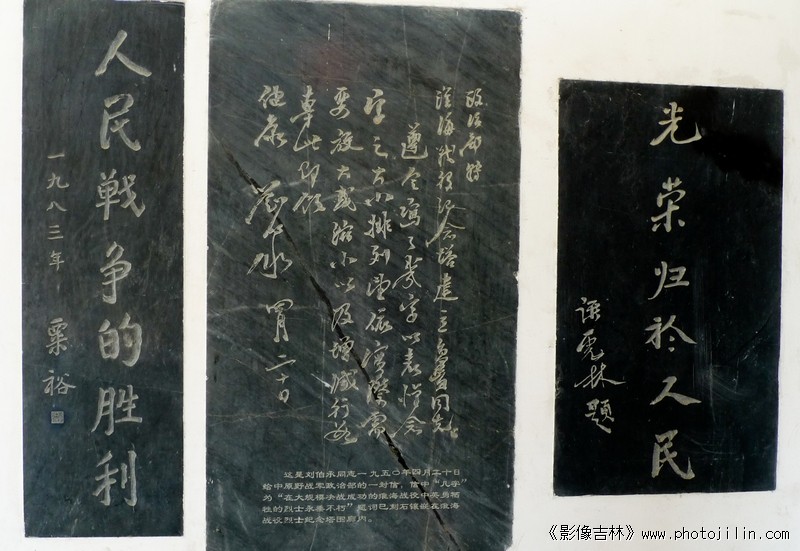 光荣归於人民
谭震林题
政治部转
淮海战役纪念塔建立委员同志
遵令写了几字以表悼念
字之大小排列望依实际需
要放大或缩小以及增减行数
专此即颂
健康 刘伯承 四月二十日
这是刘伯承同志一九五〇年四月二十日
给中原野战军政治部的一封信。信中“几字”
为“在大规模决战成功的淮海战役中英勇牺
牲的烈士永垂不朽”题词已刻石镶嵌在淮海
战役烈士纪念塔围廊内。
人民戦争的胜利
一九八三年 粟裕
《影像吉林》www.photojilin.com